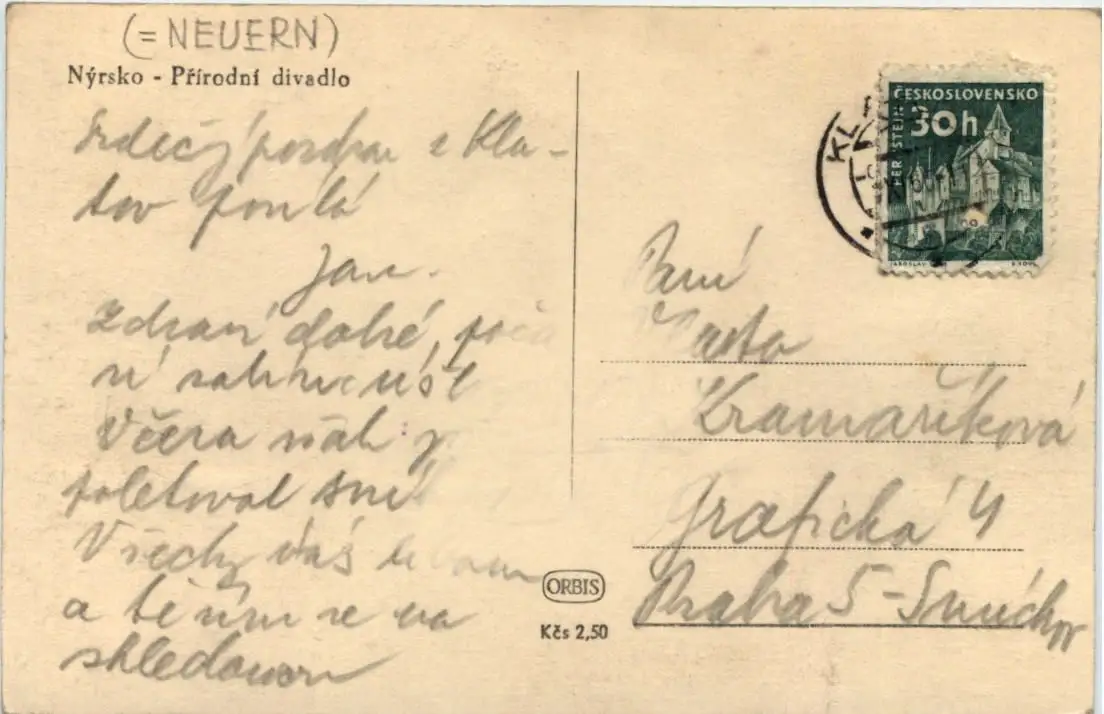 (= NEUERN)
Nýrsko - Přírodní divadlo
Srdečný pozdrav z Kla-
tov posílá
Jan.
Zdraví dobré,
Včera
poletoval sníh
Všechny Vás líbám
a těším se na
shledanou
ORBIS
Kčs 2,50
ČESKOSLOVENSKO
30h
Paní
Vlasta
Kramaříková
Grafická 4
Praha 5 - Smíchov